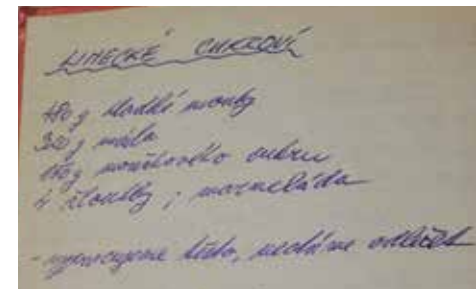 LINECKÉ CUKROVÍ
480 g hladké mouky
320 g másla
160 g moučkového cukru
4 žloutky ; marmeláda
- vypracujeme těsto, necháme odležet